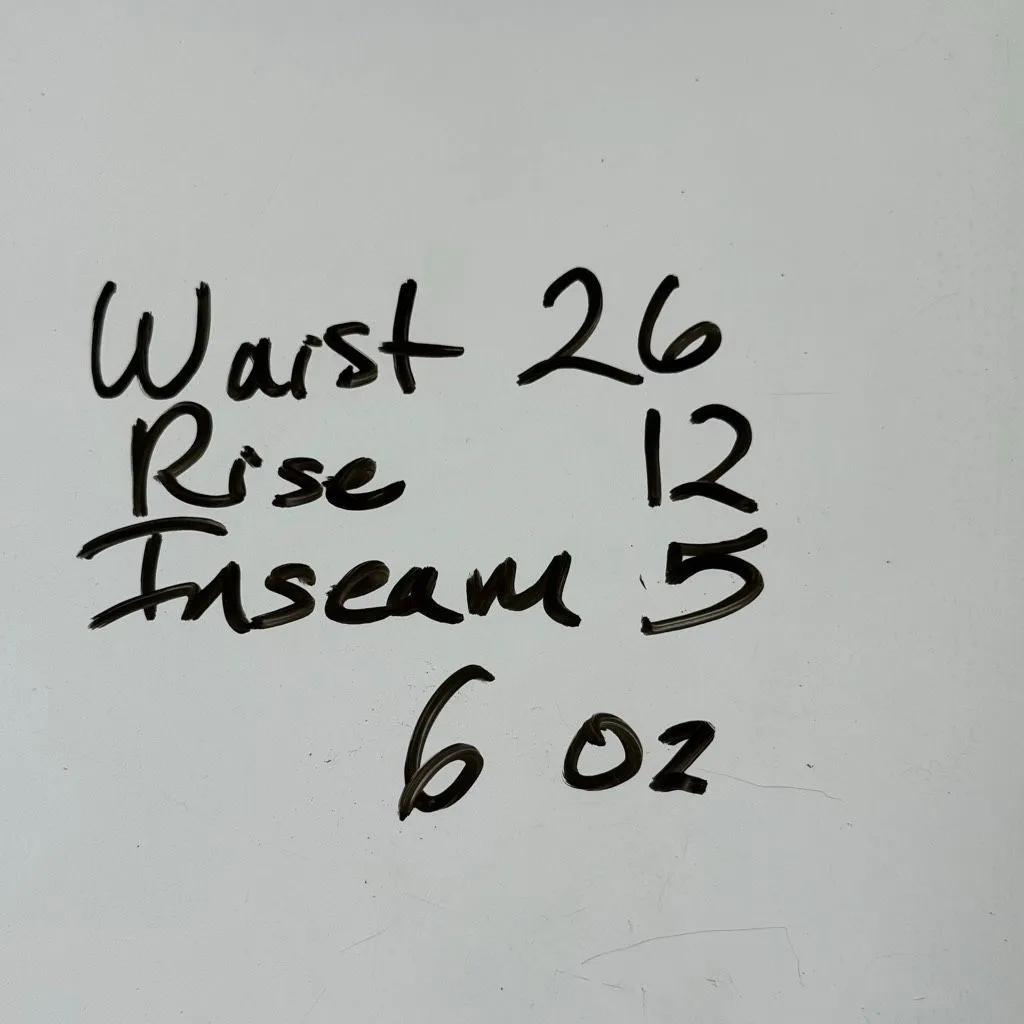 Waist 26
Rise 12
Inseam 5
6 oz